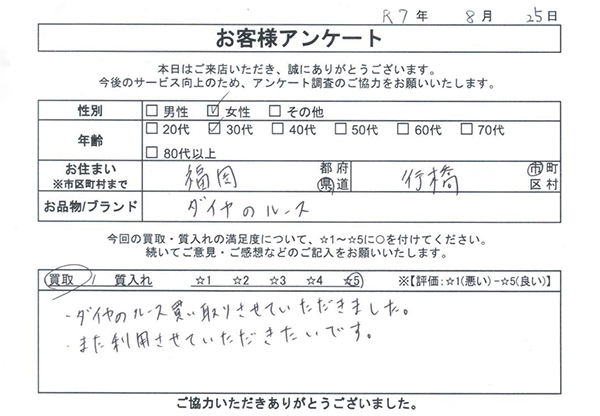 R7年 8月 25日
お客様アンケート
本日はご来店いただき、誠にありがとうございます。
今後のサービス向上のため、アンケート調査のご協力をお願いいたします。
性別 □男性 ☑女性 □その他
年齢 □20代 ☑30代 □40代 □50代 □60代 □70代
□80代以上
お住まい 福岡 都府県道 行橋 市町区村
※市区町村まで
お品物/ブランド ダイヤのルース
今回の買取・質入れの満足度について、☆1～☆5に○を付けてください。
続いてご意見・ご感想などのご記入をお願いいたします。
買取 / 質入れ ☆1 ☆2 ☆3 ☆4 ☆5 ※【評価:☆1(悪い)-☆5(良い)】
・ダイヤのルース買い取りさせていただきました。
・また利用させていただきたいです。
ご協力いただきありがとうございました。